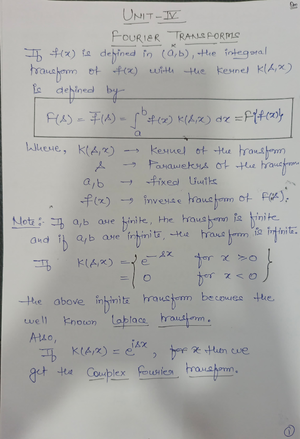 UNIT-IV
FOURIER TRANSFORMS
If f(x) is defined in (a,b), the integral
transform of f(x) with the kernel K(s,x)
is defined by
F(s) = f̄(s) = ∫ₐᵇ f(x) K(s,x) dx = F{f(x)}
Where, K(s,x) → Kernel of the transform
s → Parameters of the transform
a,b → fixed limits
f(x) → inverse transform of F(s).
Note:- If a,b are finite, the transform is finite
and if a,b are infinite, the transform is infinite.
If K(s,x) = { e^-sx for x ≥ 0 }
= { 0 for x < 0 }
the above infinite transform becomes the
well known Laplace transform.
Also,
If K(s,x) = e^isx, for x then we
get the Complex Fourier transform.
1